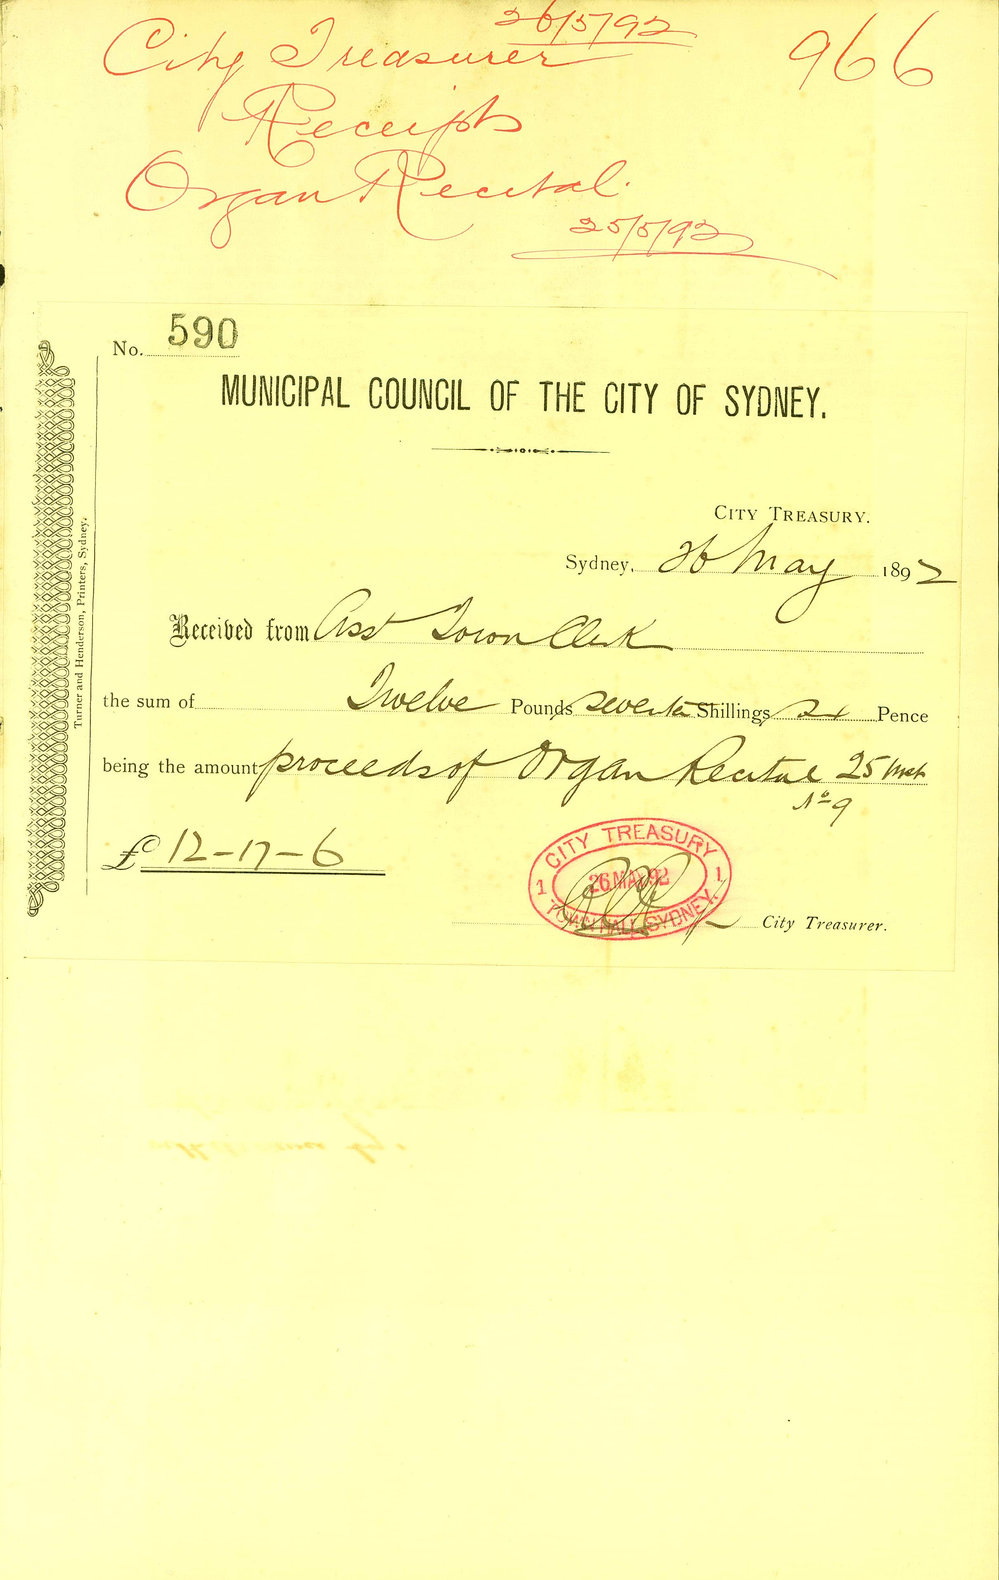 26/5/92
City Treasurer 966
Receipts
Organ Recital.
25/5/92
No. 590
MUNICIPAL COUNCIL OF THE CITY OF SYDNEY.
CITY TREASURY.
Sydney, 26 May 1892
Received from Asst Town Clerk
the sum of Twelve Pounds seventn Shillings six Pence
being the amount proceeds of Organ Recital 25 inst
No 9
£ 12-17-6
CITY TREASURY
1 26.MAY.92 1
TOWN HALL, SYDNEY.
City Treasurer.
Turner and Henderson, Printers, Sydney.